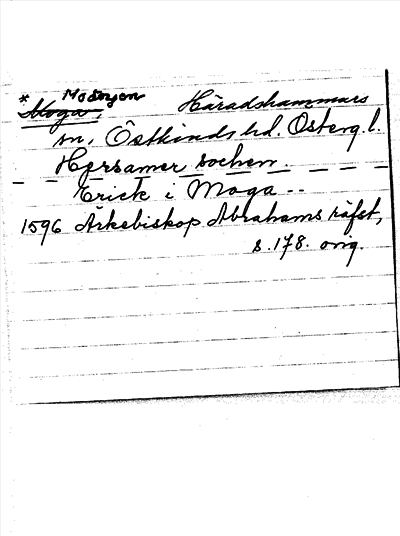 Moðnyon
* Moga, Häradshammars
sn, Östkinds hd. Österg. l.
Hersamer sochen.
Erick i Moga --
1596 Ärkebiskop Abrahams räfst,
s. 178. orig.